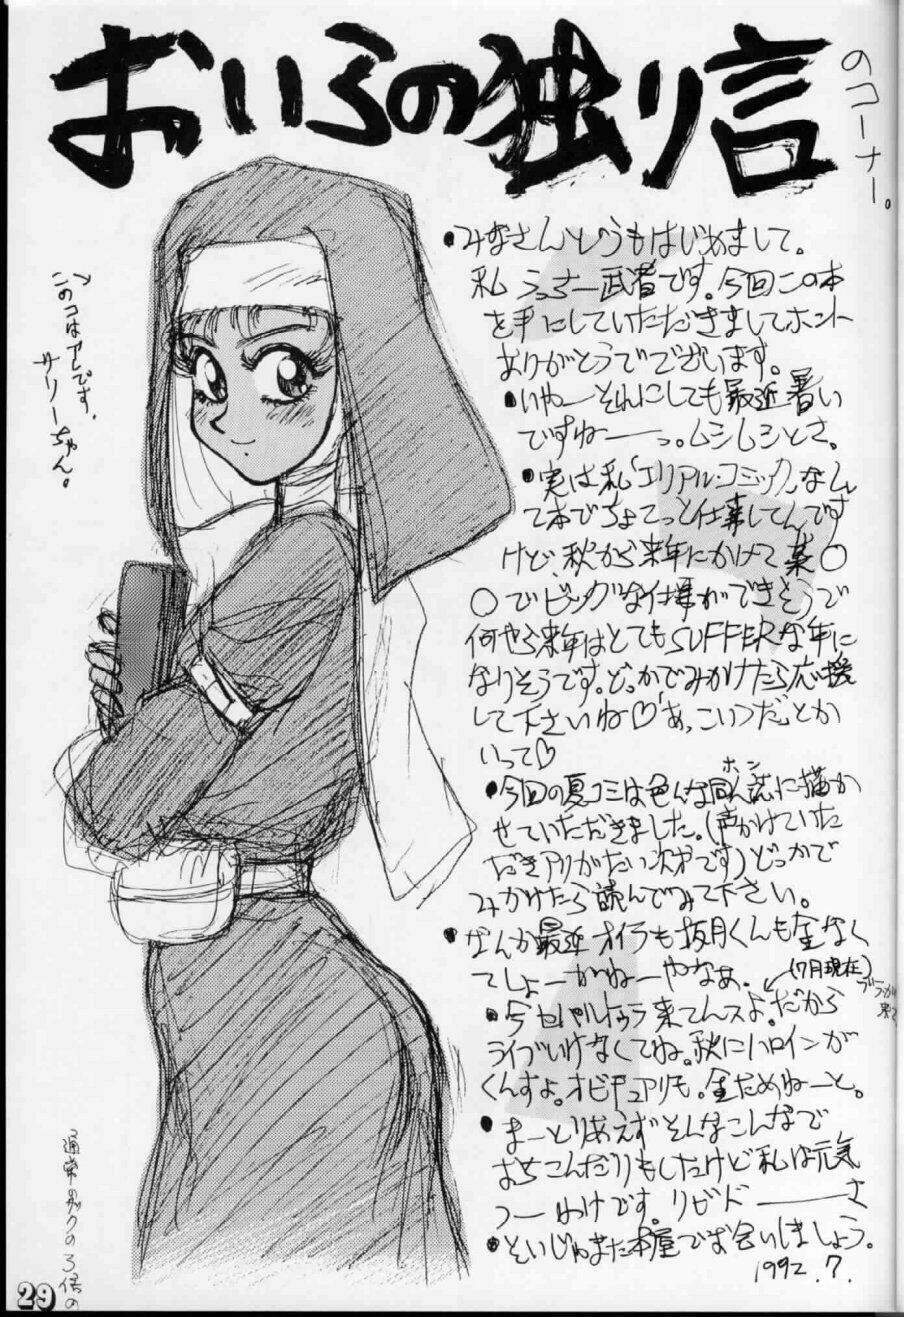 おいらの独り言
のコーナー。
このコはアレです、
サリーちゃん。
●みなさんどうもはじめまして。
私 うっちー武者です。今回この本
を手にしていただきましてホント
ありがとうでございます。
●いやーそれにしても最近暑い
ですねーーっ。ムシムシとさ。
●実は私「エリアルコミック」なん
て本でちょてっと仕事してんです
けど、秋から来年にかけて某○
○でビッグな仕事ができそうで
何やら来年はとてもSUFFERな年に
なりそうです。どっかでみかけたら応援
して下さいね♡「あ、こいつだ」とか
いって♡
●今回の夏コミは色んな同人誌に描か
ホン
せていただきました。(声かけていた
だきアリがたい次第です)どっかで
みかけたら読んでみて下さい。
●なんか最近オイラも抜月くんも金なく
てしょーがねーやなあ。
(7月現在)
●今セパルトゥラ来てんスよ。だから
ライブいけなくてね。秋にハロインが
くんすよ。オビチュアリも。金ためねーと。
●まーとりあえずそんなこんなで
おちこんだりもしたけど私は元気
つーわけです。リビドーーーさ
●そいじゃまた本屋でお会いしましょう。
1992.7.
通常のザクの3倍の
29